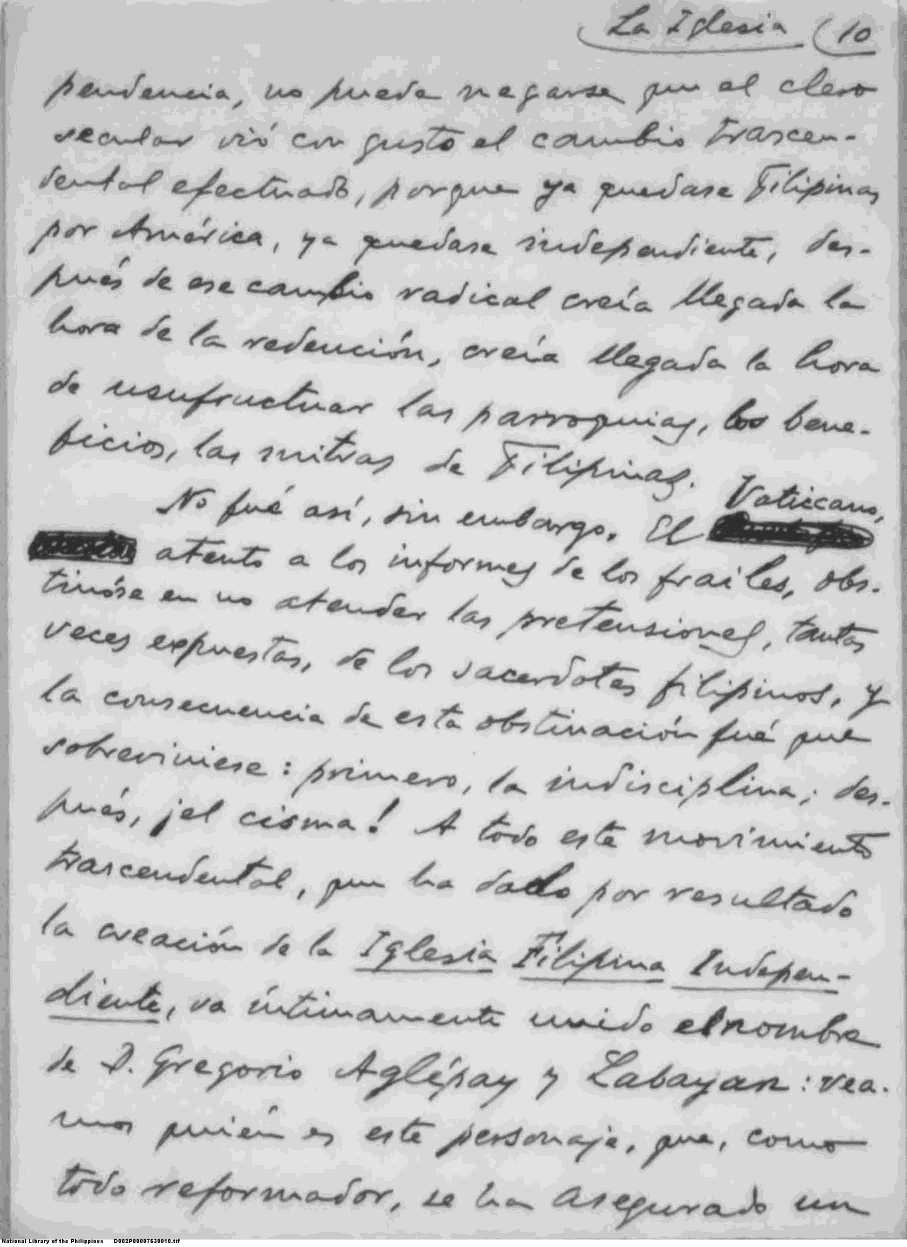 La Iglesia (10
pendencia, no puede negarse que el clero
secular vió con gusto el cambio trascen-
dental efectuado, porque ya quedase Filipinas
por América, ya quedase independiente, des-
pués de ese cambio radical creía llegada la
hora de la redención, creía llegada la hora
de usufructuar las parroquias, los bene-
ficios, las mitras de Filipinas.
No fué así, sin embargo. El Vaticano,
atento a los informes de los frailes, obs-
tinóse en no atender las pretensiones, tantas
veces expuestas, de los sacerdotes filipinos, y
la consecuencia de esta obstinación fué que
sobreviniese: primero, la indisciplina; des-
pués, ¡el cisma! A todo este movimiento
trascendental, que ha dado por resultado
la creación de la Iglesia Filipina Indepen-
diente, va íntimamente unido el nombre
de D. Gregorio Aglípay y Labayan: vea-
mos quién es este personaje, que, como
todo reformador, se ha asegurado un
National Library of the Philippines D002P00007630010.tif